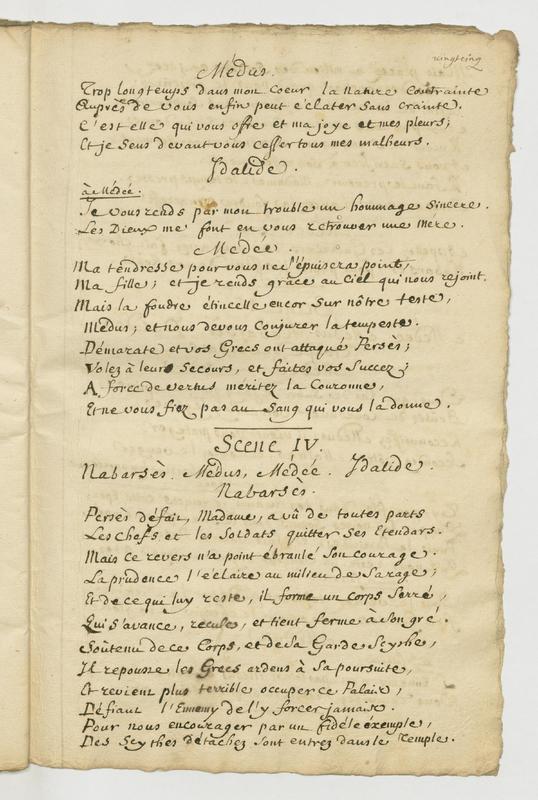 vingtcinq
Médus.
Trop longtemps dans mon coeur la nature contrainte
Auprès de vous enfin peut éclater sans crainte.
C'est elle qui vous offre et ma joye et mes pleurs;
Et je sens devant vous cesser tous mes malheurs.
Idalide.
à Médée.
Je vous rends par mon trouble un hommage sincere.
Les Dieux me font en vous retrouver une mére.
Médée.
Ma tendresse pour vous ne s'épuisera point,
Ma fille; et je rends grâce au Ciel qui nous rejoint.
Mais la foudre étincelle encor sur nôtre teste,
Médus; et nous devons conjurer la tempeste.
Démarate et vos Grecs ont attaqué Persès;
Volez à leurs secours, et faites vos succez;
A force de vertus meritez la Couronne,
Et ne vous fiez pas au sang qui vous la donne.
Scene IV.
Nabarsès. Médus, Médée. Idalide.
Nabarsès.
Persès défait, Madame, a vû de toutes parts
Les chefs et les soldats quitter ses Etendars.
Mais ce revers n'a point ébranlé son courage.
La prudence l'éclaire au milieu de sa rage;
Et de ce qui luy reste, il forme un corps serré,
Qui s'avance, recule, et tient ferme à son gré.
Soûtenu de ce Corps, et de sa Garde Scythe,
Il repousse les Grecs ardens à sa poursuite,
Et revient plus terrible occuper ce Palais,
Défiant l'Ennemy de l'y forcer jamais.
Pour nous encourager par un fidéle exemple,
Des Scythes détachez sont entrez dans le Temple.